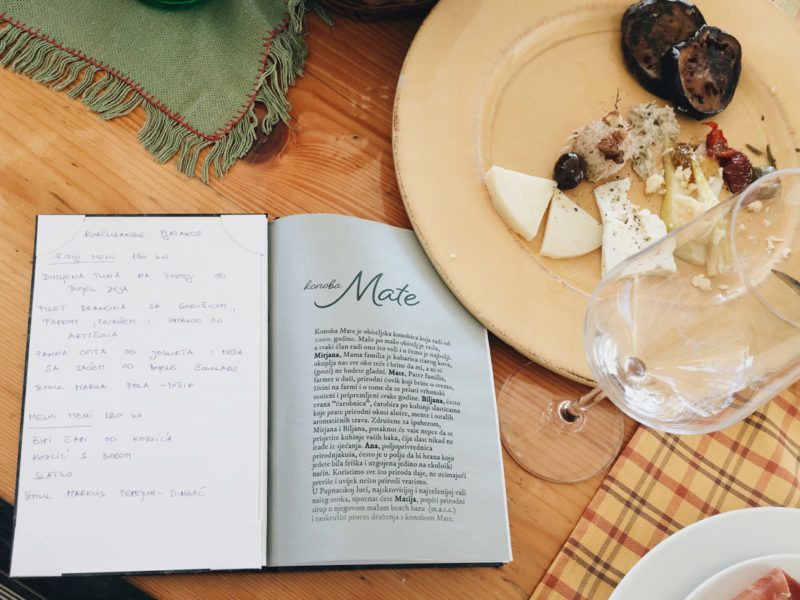 KORČULANSKE PJATANCE
RIBLJI MENI 180 KN
DIMLJENA TUNA NA POSTELJI OD
DIVLJEG ZELJA
FILET BRANCINA SA GORČICOM,
PAPROM, POVRĆEM I UMAKOM OD
ARTIČOKA
PANNA COTTA OD JOGURTA I MEDA
SA SACEM OD BIJELE ČOKOLADE
ŠMUL MARKA POLA - POŠIP
MESNI MENI 180 KN
OD KOZLIĆA
KOZLIĆ S BOBOM
SLATKO
ŠMUL MARKUS - DINGAČ
konoba Mate
Konoba Mate je obiteljska konobica koja radi od
2000. godine. Malo po malo obitelj je rasla,
a svaki član radi ono što voli i u čemu je najbolji.
Mirjana, Mama familia je kuharica starog kova,
okuplja nas sve oko teće i brine da mi, a ni vi
(gosti) ne budete gladni. Mate, Pater familia,
farmer u duši, prirodni čovik koji brine o svemu,
živini na farmi i o tome da su pristi vrhunski
osušeni i pripremljeni svake godine. Biljana, često
zvana "čarobnica", čarobira po kuhinji slasticama
koje prate prirodni okusi aluire, mente i ostalih
aromatičnih trava. Združene za špaherom,
Mirjana i Biljana, potaknut će vaše nepce da se
prisjetite kuhinje vaših baka, čija slast nikad ne
izađe iz sjećanja. Ana, poljoprivrednica
prirodnjakuša, često je u polju da bi hrana koju
jedete bila friška i uzgojena jedino na ekološki
način. Koristimo sve što priroda daje, ne uzimajući
previše i uvijek nešto prirodi vratimo.
U Pupnatskoj luci, najskrovitijoj i najzelenijoj vali
našeg otoka, upoznat ćete Matija, popiti prirodni
sirup u njegovom malom beach baru (m.a.t.c.)
i zaokružiti proces druženja s konobom Mate.